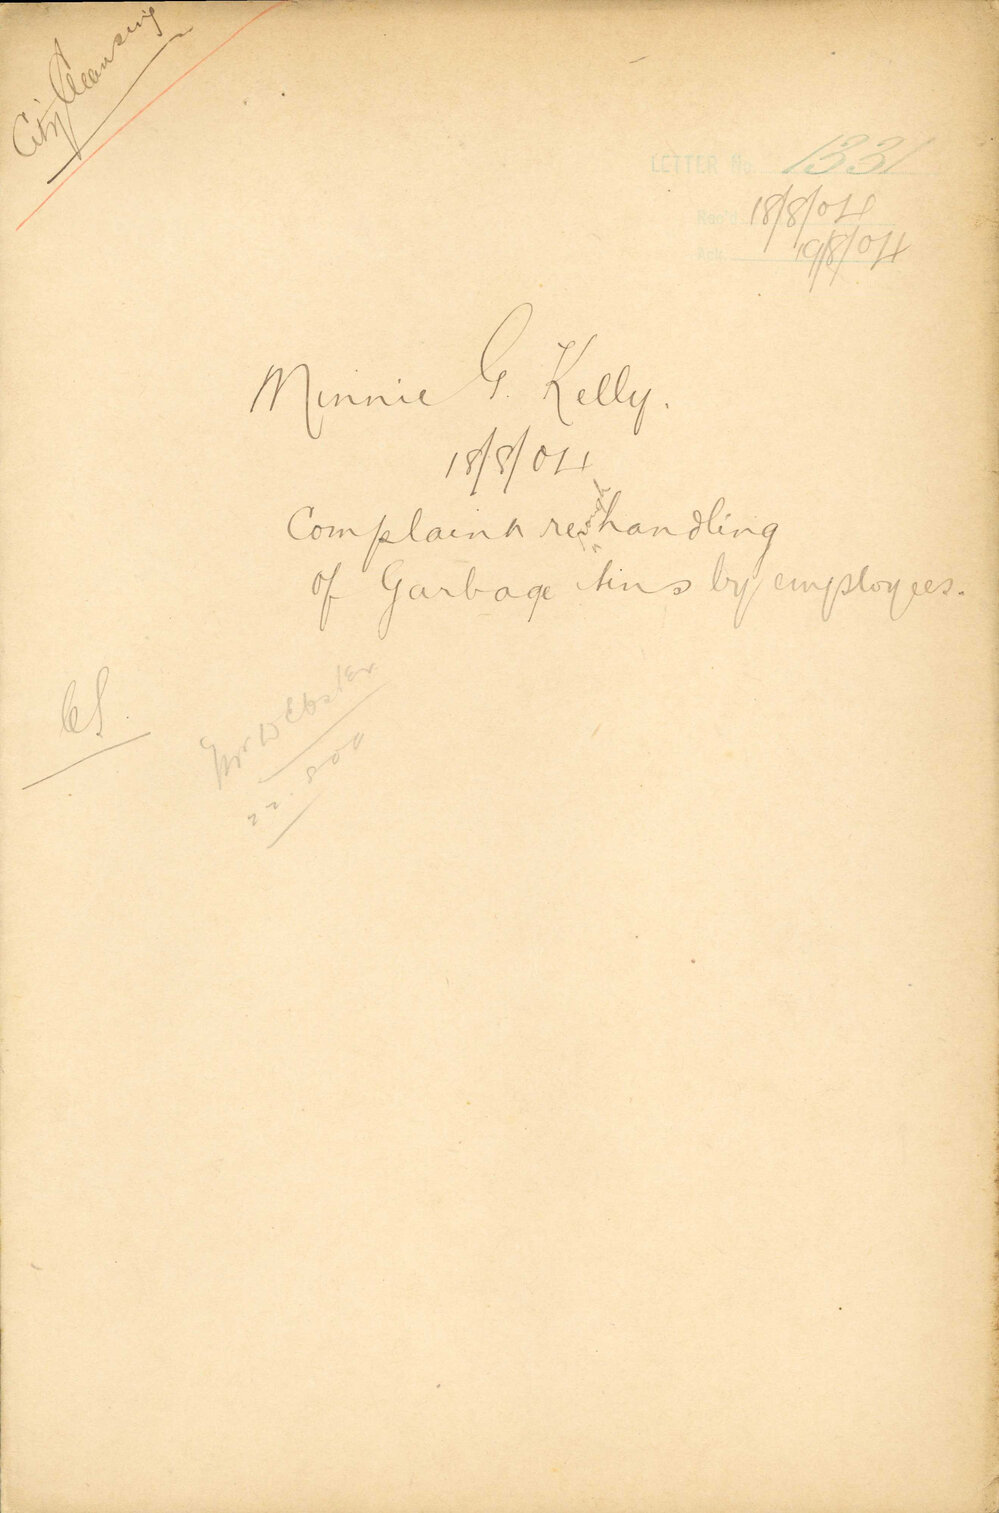 City Cleansing
LETTER No 1331
Rec'd 18/8/04
Ack. 19/8/04
Minnie G. Kelly.
18/8/04
Complaint re rough handling
of Garbage tins by employees.
CS
Mr Webster
22.8.04